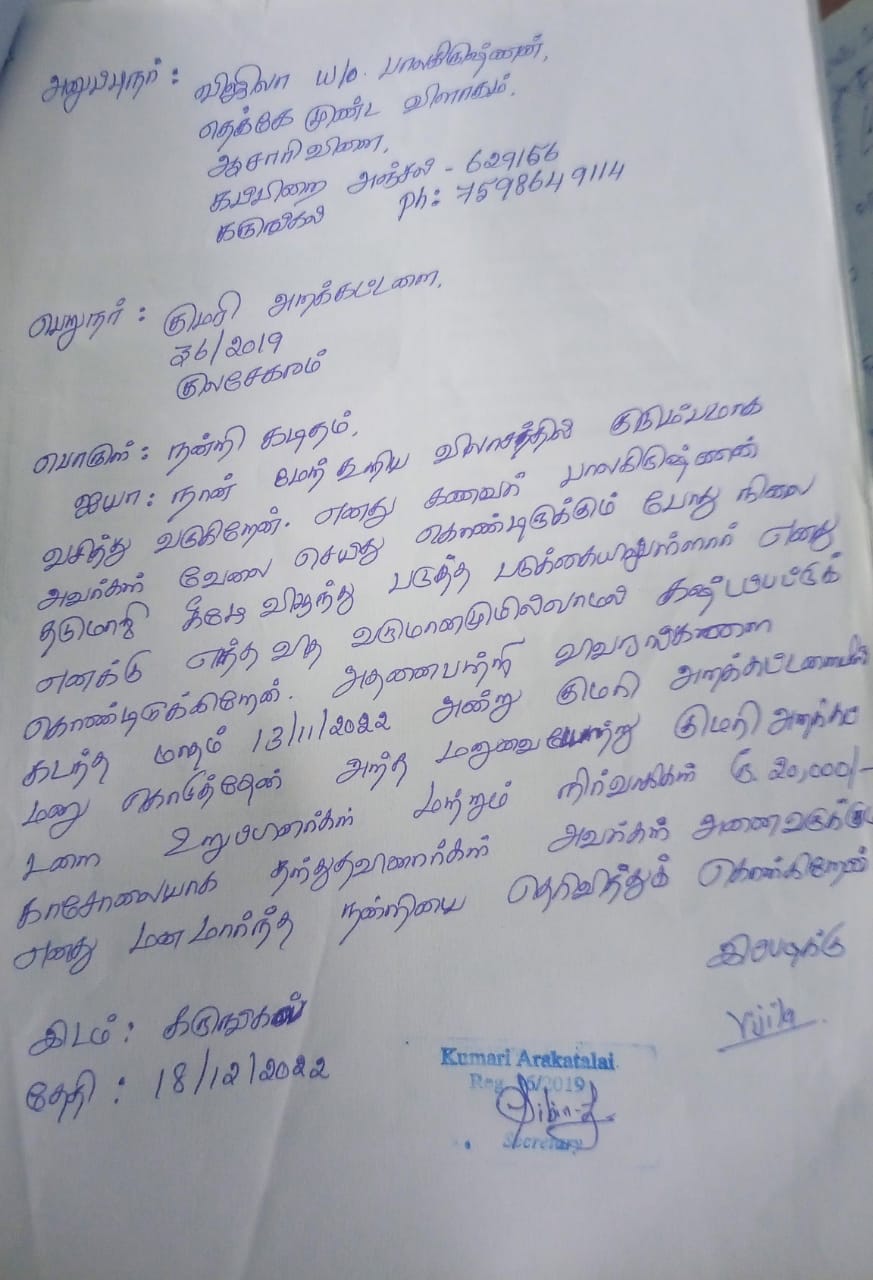 அனுப்புநர் : விஜிலா w/o. பாலகிருஷ்ணன்,
தெக்கே முண்ட விளாகம்,
ஆசாரிவிளை,
கப்பியறை அஞ்சல் - 629156
கருங்கல் Ph: 7598649114
பெறுநர் : குமரி அறக்கட்டளை,
36/2019
குலசேகரம்
பொருள் : நன்றி கடிதம்.
ஐயா : நான் மேற்கூறிய விலாசத்தில் குடும்பமாக
வசித்து வருகிறேன். எனது கணவர் பாலகிருஷ்ணன்
அவர்கள் வேலை செய்து கொண்டிருக்கும் போது நிலை
தடுமாறி கீழே விழுந்து படுத்த படுக்கையாயுள்ளார் எனது
எனக்கு எந்த வித வருமானமுமில்லாமல் கஷ்டப்பட்டுக்
கொண்டிருக்கிறேன். அதனைபற்றி விவரங்களை
கடந்த மாதம் 13/11/2022 அன்று குமரி அறக்கட்டளையில்
மனு கொடுத்தேன் அந்த மனுவை குமரி அறக்கட்
டளை உறுப்பினர்கள் மற்றும் நிர்வாகிகள் ரூ. 20,000/-
காசோலையாக தந்துதவினார்கள் அவர்கள் அனைவருக்கும்
எனது மனமார்ந்த நன்றியை தெரிவித்துக் கொள்கிறேன்
இப்படிக்கு
Vijila
இடம் : கருங்கல்
தேதி : 18/12/2022
Kumari Arakatalai
Reg. 36/2019
Secretary